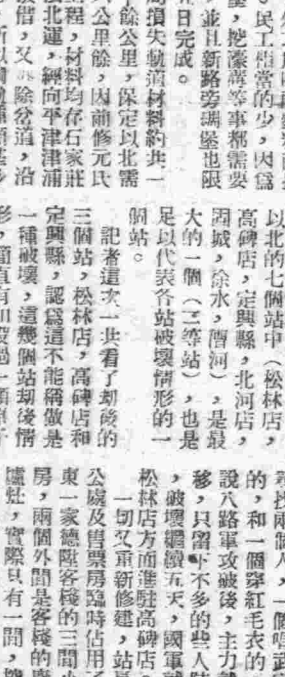 民工相當的少，因爲
，挖濠溝等事都需要
，並且新路旁碉堡也限
日完成。
損失軌道材料約共一
餘公里，保定以北需
公里餘，因兩修元氏
程，材料均存石家莊
北運，經向平津津浦
借，又除岔道，沿
以北的七個站中（松林店，
高碑店，定興縣，北河店，
固城，徐水，漕河），是最
大的一個（三等站），也是
足以代表各站破壞情形的一
個站。
記者這次一共看了刧後的
三個站，松林店，高碑店和
定興縣，認爲這不能稱做是
一種破壞，這幾個站刧後情
形，簡直有如
尋找兩個人，一個
的，和一個穿紅毛衣的，
說八路軍攻破後，主力
移，只留下不多的些人
，破壞繼續五天，國軍
松林店方面進駐高碑店。
一切又重新修建，站長
公處及售票房臨時佔用
東一家德陞客棧的三間
房，兩個外間是客棧的
爐灶，實際只有一間，